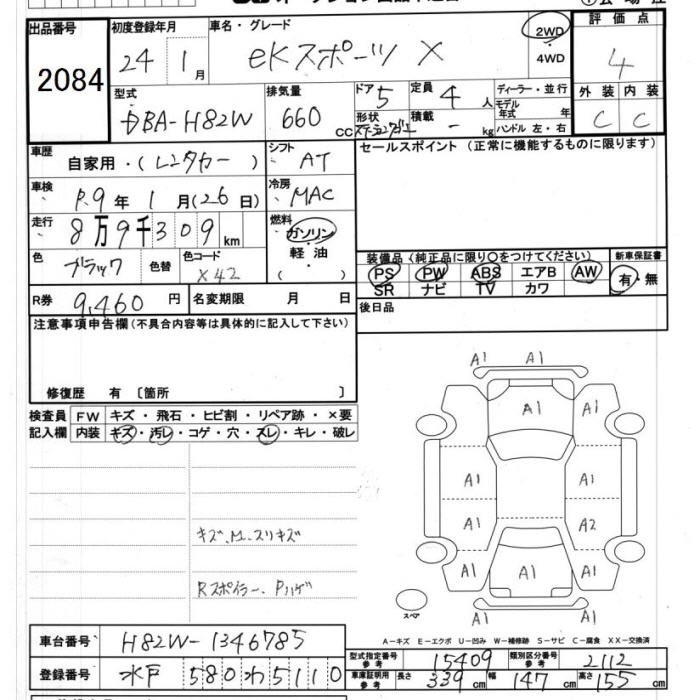 出品番号 初度登録年月 車名・グレード 評価点
2084 24年 1月 eKスポーツ X 2WD・4WD 4
型式 排気量 ドア 定員 ディーラー・並行 外装 内装
DBA-H82W 660cc 5 4人 モデル年式 年 C C
形状 積載 - kg ハンドル 左・右
車歴 自家用・(レンタカー) シフト AT セールスポイント(正常に機能するものに限ります)
車検 R.9年 1月(26日) 冷房 MAC
走行 8万9千309km 燃料 ガソリン・軽・油( )
色 ブラック 色替 色コード X42
装備品(純正品に限り○をつけてください) 新車保証書
PS PW ABS エアB AW 有・無
SR ナビ TV カワ
R券 9,460円 名変期限 月 日 後日品
注意事項申告欄(不具合内容等は具体的に記入して下さい)
修復歴 有 〔箇所 〕
検査員 FW キズ・飛石・ヒビ割・リペア跡・×要
記入欄 内装 キズ・汚レ・コゲ・穴・スレ・キレ・破レ
キズ、M、スリキズ
Rスポイラー、Pハゲ
A1 A1
A1 A1 A1
A1 A1
A1 A2
A1 A1 A1
A1
スペア
A-キズ E-エクボ U-凹み W-補修跡 S-サビ C-腐食 XX-交換済
車台番号 H82W-1346785
型式指定番号 参考 15409 類別区分番号 参考 2112
登録番号 水戸 580 わ 5110
車庫証明用 参考 長さ 339cm 幅 147cm 高さ 155cm